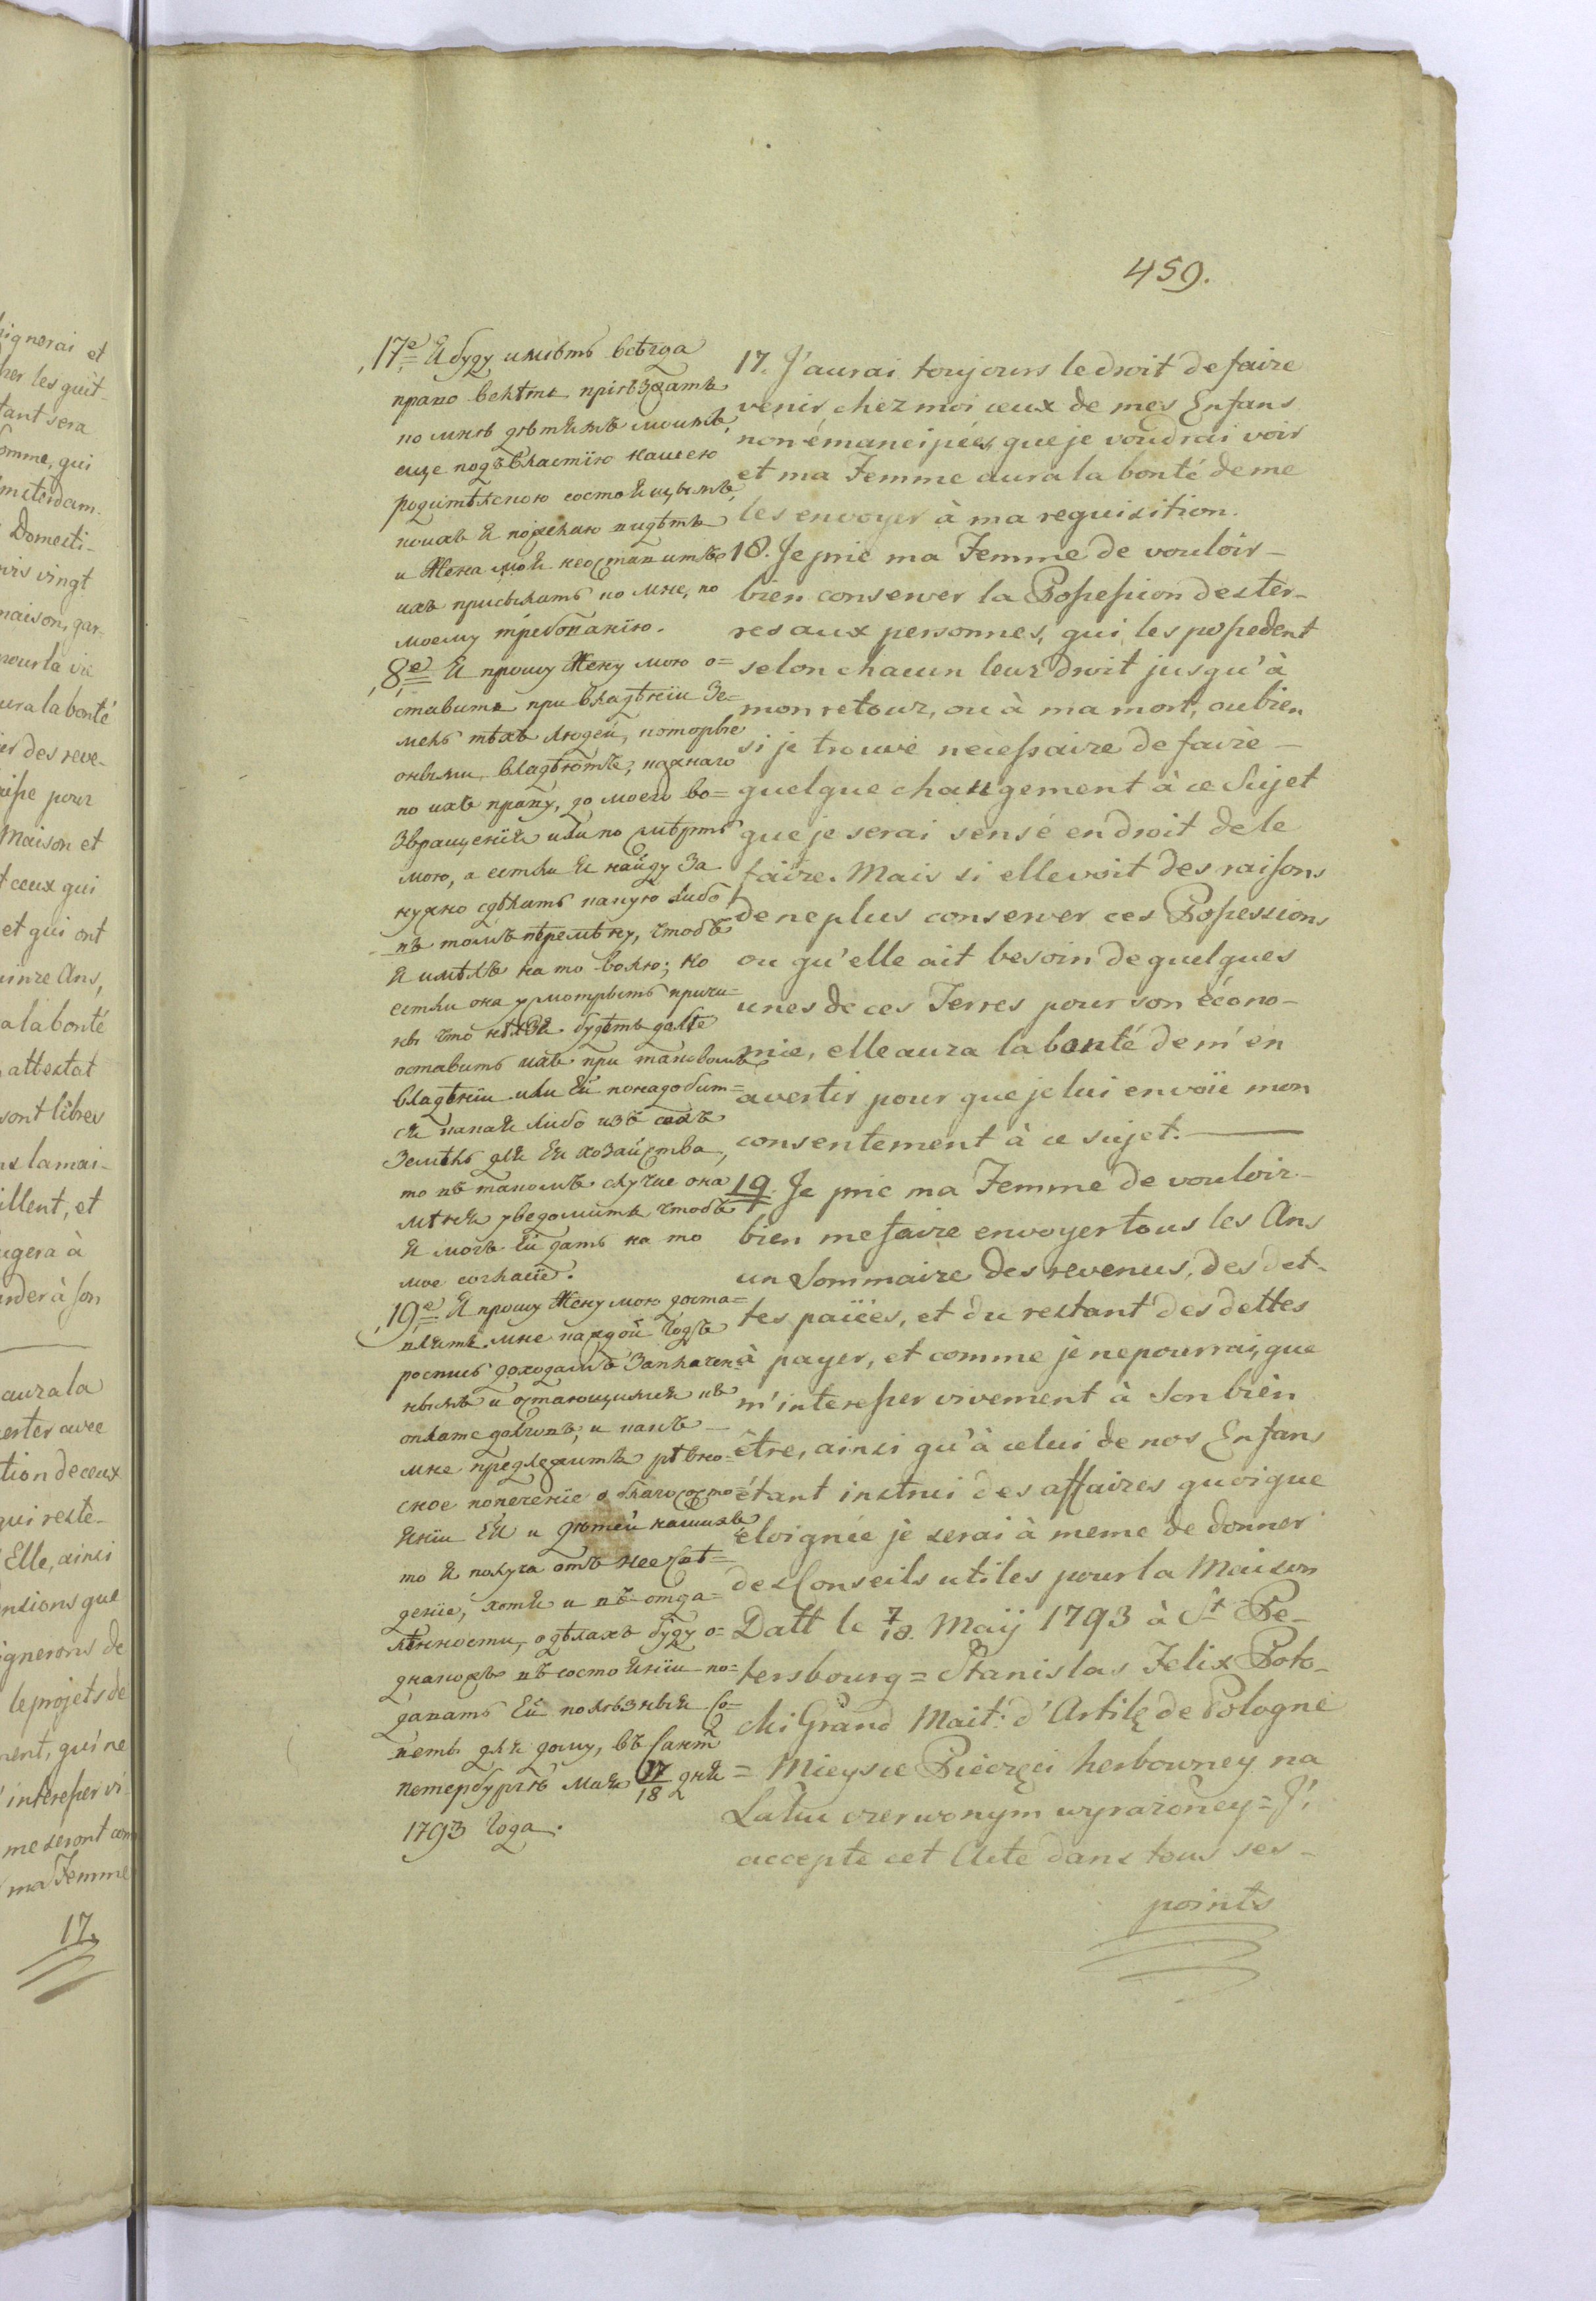 459.
17.е Я буду имѣть всѣгда
право велѣть пріѣзжать
ко мнѣ дѣтямъ моимъ,
еще подъ властію нашею
родитѣлскою состоящымъ,
коихъ я пожелаю видѣть
и Жена моя неоставитъ
ихъ присылать ко мне, по
моему требованію.
,8е Я прошу Жену мою о=
ставить при владѣніи зе=
мель тѣхъ людей, которые
оными владѣютъ, каждаго
по ихъ праву, до моего во=
звращенія или по смѣрть
мою, а естли я найду за
нужно сдѣлать какую либо
въ томъ перемѣну, чтобъ
я имѣлъ на то волю; но
естли она усмотрытъ причи=
ны что нелзя будетъ далѣе
оставить ихъ при таковомъ
владѣніи или Ей понадобит=
ся какая либо изъ сихъ
Земѣль для Ея хозайства,
то въ такомъ случае она
мѣня уведомитъ чтобъ
я могъ Ей дать на то
мое согласіе.
,19.е Я прошу Жену мою доста=
влять мне каждой годъ
роспись доходамъ заплачен=
нымъ и остающимся въ
оплате долговъ, и какъ
мне предлежитъ рѣвно=
сное попеченіе о благососто=
яніи Ея и дѣтей нашихъ
то я получа отъ нее свѣ=
деніе, хотя и въ отда=
лѣнности, о дѣлахъ буду о=
днакожъ въ состояніи по=
давать Ей полѣзныя со=
веты для дому, въ Санкт
петербургѣ маія 17/18 дня
1793 года.
17. J'aurai toujours le droit de faire
venir chez moi ceux de mes Enfans
non émancipées, que je voudrai voir
et ma Femme aura la bonté de me
les envoyer à ma requisition.
18. Je prie ma Femme de vouloir
bien conserver la Possession des ter-
res aux personnes, qui les possedent
selon chacun leur droit jusqu'à
mon retour, ou à ma mort, oubien
si je trouve necessaire de faire
quelque changement à ce Sujet
que je serai sensé en droit de le
faire. Mais si elle voit des raisons
de ne plus conserver ces Possessions
ou qu'elle ait besoin de quelques
unes de ces Terres pour son écono-
mie, elle aura la bonté de m'en
avertir pour que je lui envoïe mon
consentement à ce sujet.
19. Je prie ma Femme de vouloir
bien me faire envoyer tous les Ans
un Sommaire des revenus, des det-
tes païées, et du restant des dettes
à payer, et comme je ne pourrai, que
m'interesser vivement à Son bien
être, ainsi qu'à celui de nos Enfans
étant instrui des affaires quoique
éloignée je serai à meme de donner
des Conseils utiles pour la Maison
Datt le 7/18. Maÿ 1793 à St Pe-
tersbourg = Stanislas Felix Poto-
cki Grand Mait: d'Artilę de Pologne
= Mieysce Pieczęci herbowney na
Laku czerwonym wyrażoney = J'
accepte cet Acte dans tous ses
points